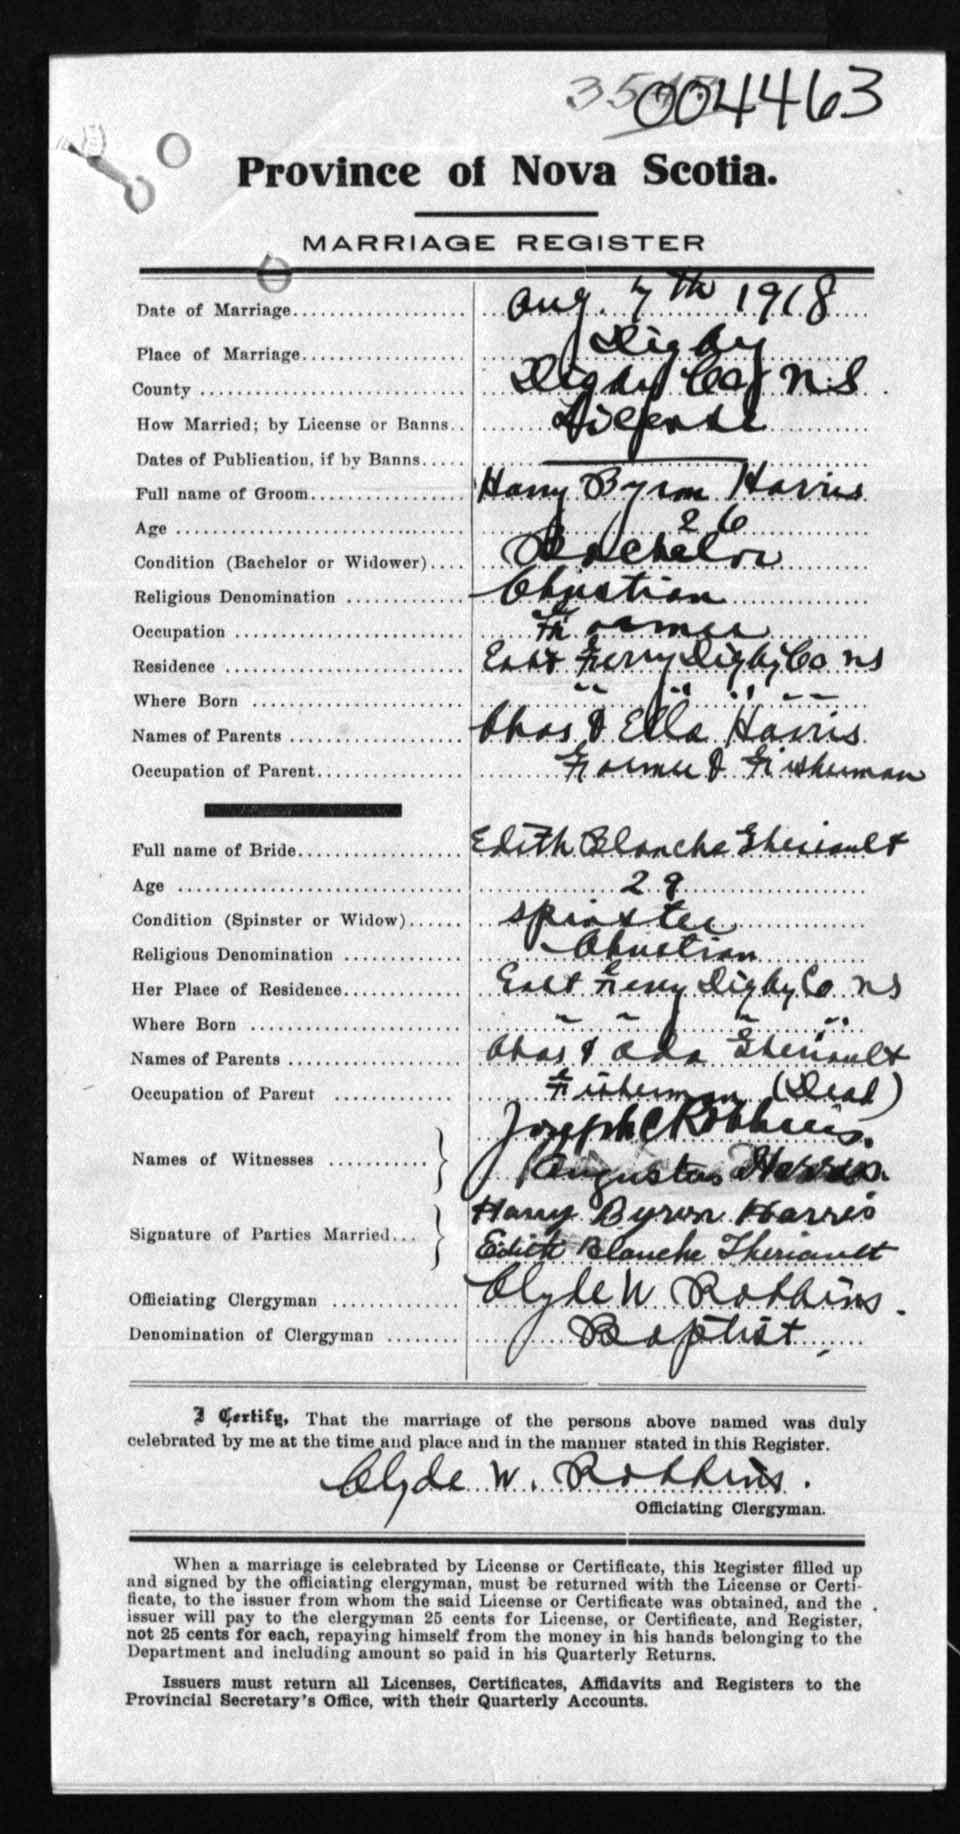 004463
Province of Nova Scotia.
MARRIAGE REGISTER
Date of Marriage Aug. 7th 1918
Place of Marriage Digby
County Digby Co N.S
How Married; by License or Banns License
Dates of Publication, if by Banns
Full name of Groom Harry Byron Harris
Age 26
Condition (Bachelor or Widower) Bachelor
Religious Denomination Christian
Occupation Farmer
Residence East Ferry Digby Co NS
Where Born " " " "
Names of Parents Chas & Ella Harris
Occupation of Parent Farmer & Fisherman
Full name of Bride Edith Blanche Theriault
Age 29
Condition (Spinster or Widow) Spinster
Religious Denomination Christian
Her Place of Residence East Ferry Digby Co NS
Where Born " " " "
Names of Parents Chas & Ada Theriault
Occupation of Parent Fisherman (Dead)
Names of Witnesses Joseph C Robbins.
Augustus Harris.
Signature of Parties Married Harry Byron Harris
Edith Blanche Theriault
Officiating Clergyman Clyde W Robbins.
Denomination of Clergyman Baptist
I Certify, That the marriage of the persons above named was duly
celebrated by me at the time and place and in the manner stated in this Register.
Clyde W. Robbins.
Officiating Clergyman.
When a marriage is celebrated by License or Certificate, this Register filled up
and signed by the officiating clergyman, must be returned with the License or Certi-
ficate, to the issuer from whom the said License or Certificate was obtained, and the
issuer will pay to the clergyman 25 cents for License, or Certificate, and Register,
not 25 cents for each, repaying himself from the money in his hands belonging to the
Department and including amount so paid in his Quarterly Returns.
Issuers must return all Licenses, Certificates, Affidavits and Registers to the
Provincial Secretary's Office, with their Quarterly Accounts.